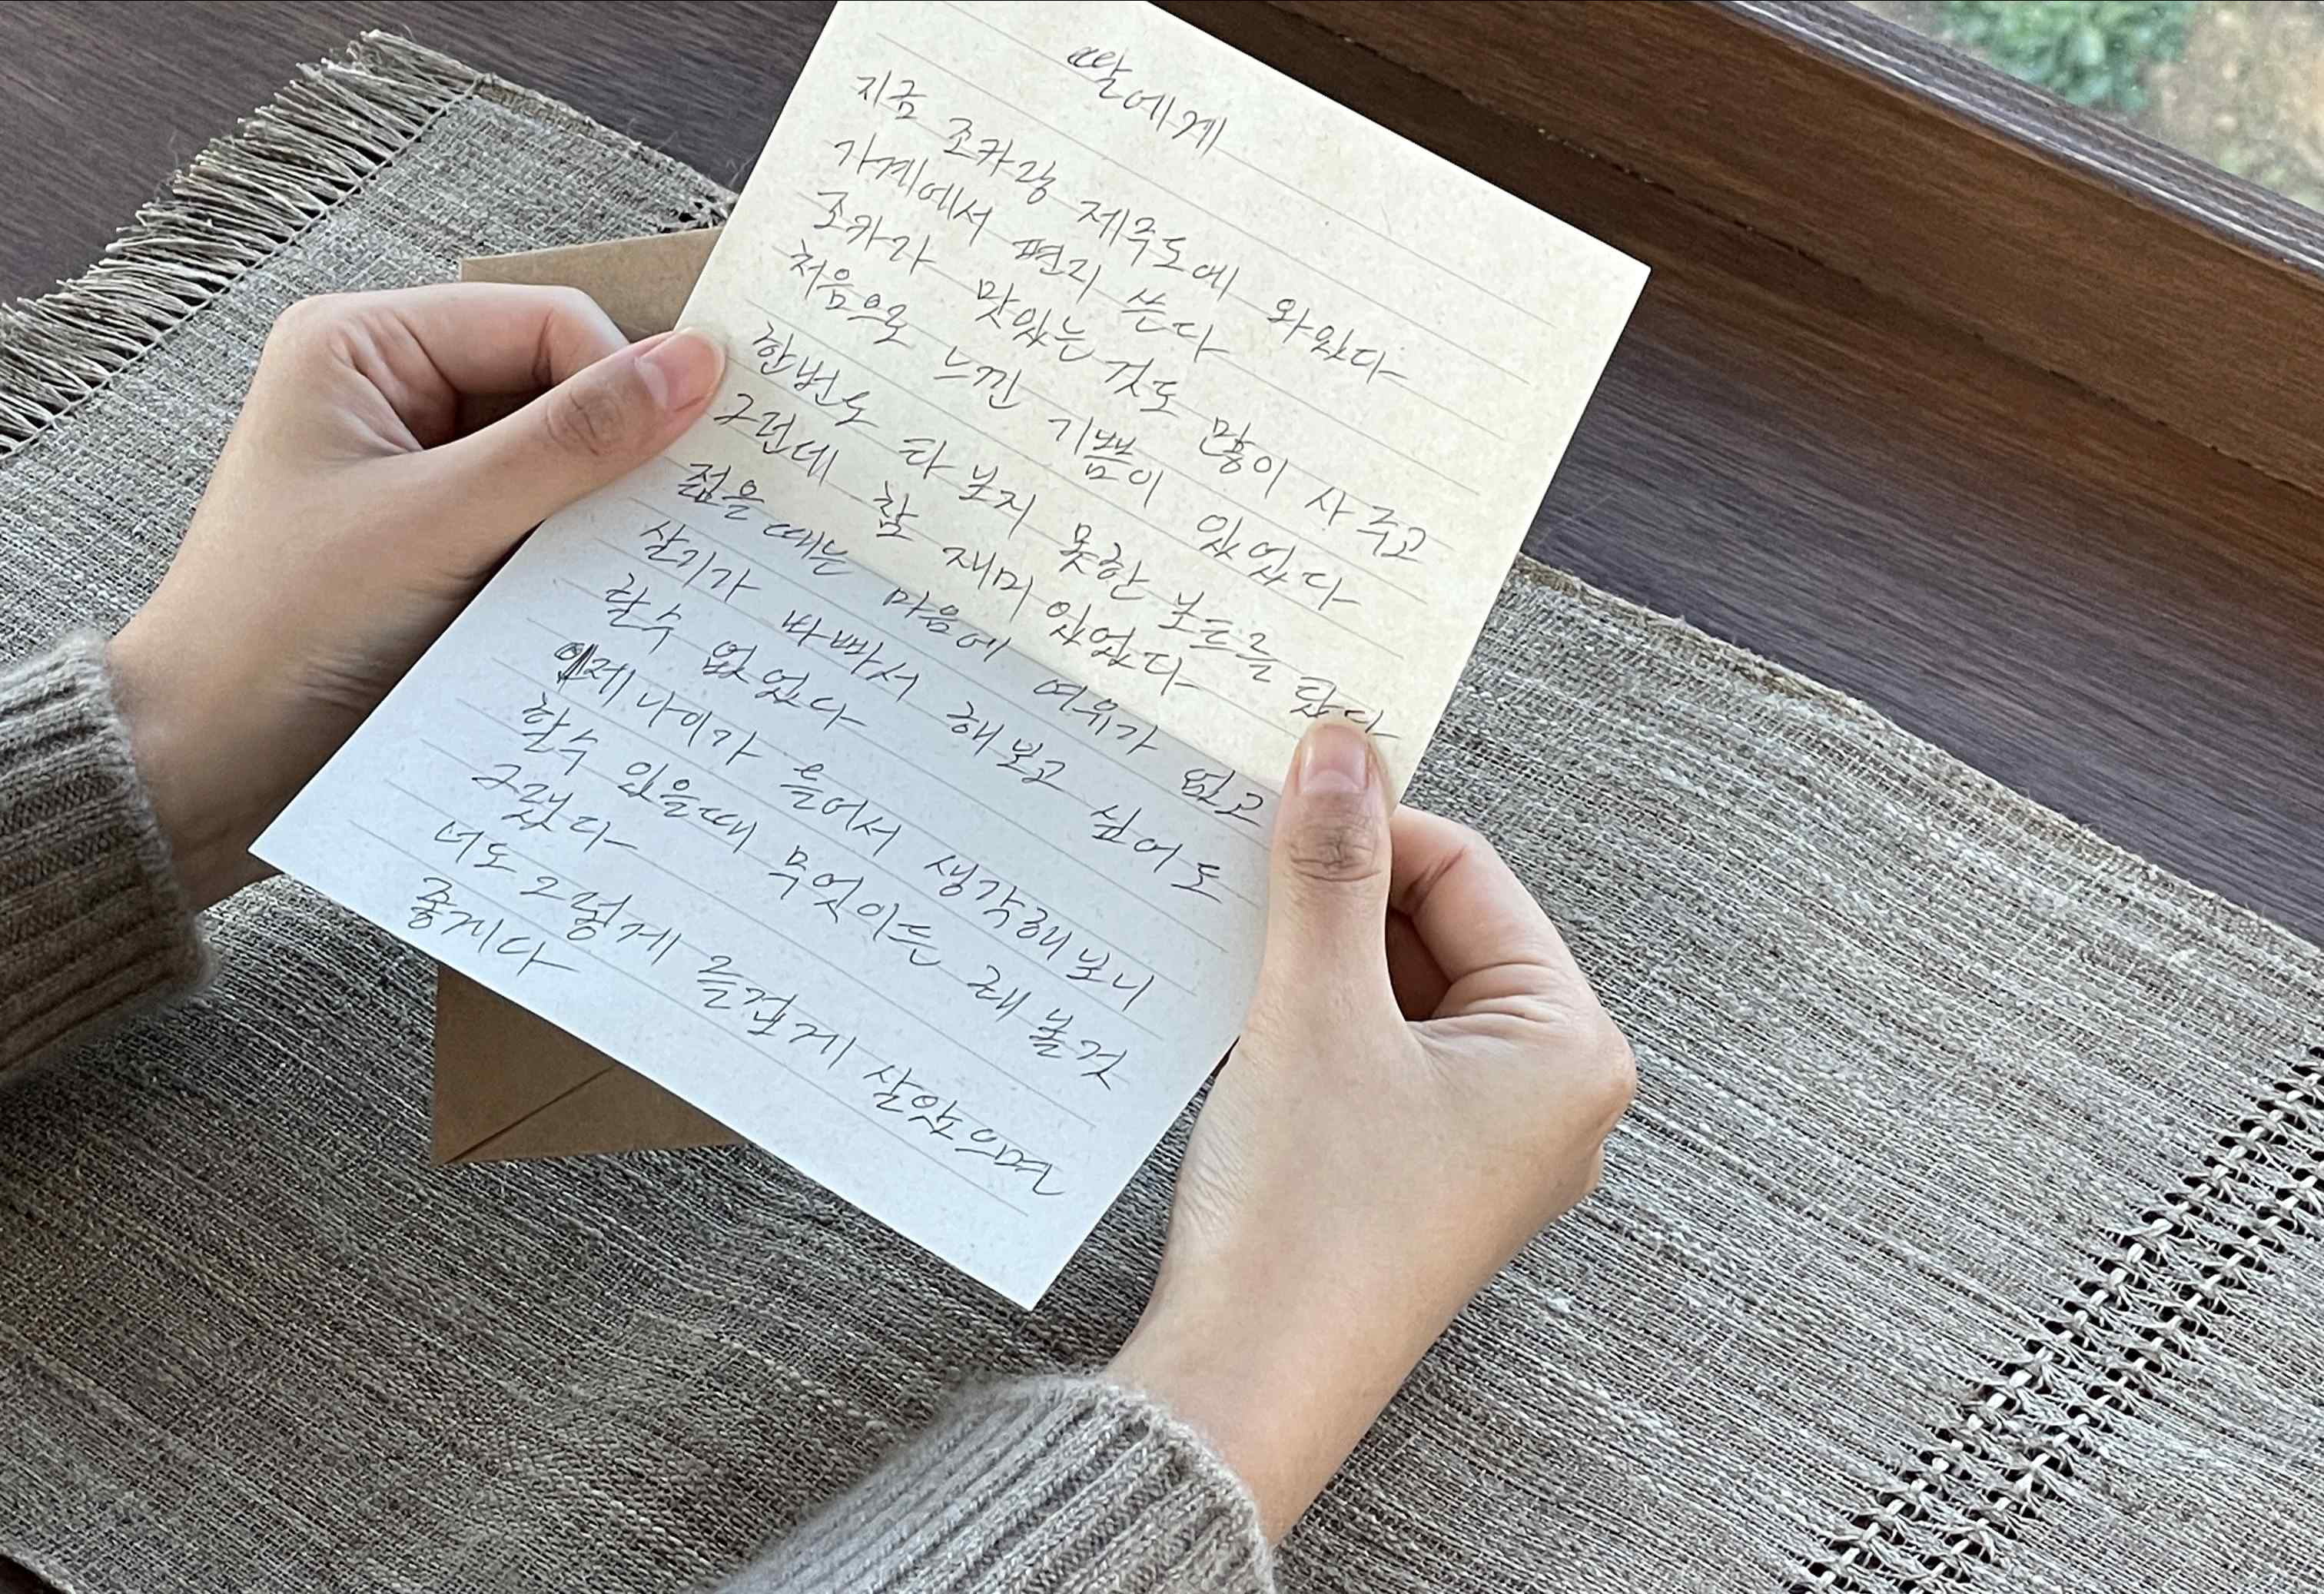 딸에게
지금 조카랑 제주도에 와있다
가계에서 편지 쓴다
조카가 맛있는 것도 많이 사 주고
처음으로 느낀 기쁨이 있었다
한번도 타 보지 못한 보드를 탔다
그런데 참 재미 있었다
젊을때는 마음에 여유가 없고
살기가 바빠서 해보고 싶어도
할수 없었다
이제 나이가 들어서 생각해보니
할수 있을때 무엇이든 해 볼것
그랬다
너도 그렇게 즐겁게 살았으면
좋게다